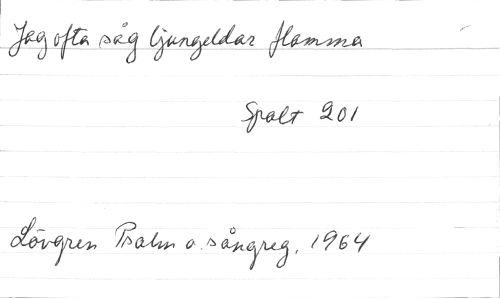 Jag ofta såg ljungeldar flamma
Spalt 201
Lövgren Psalm o. sångreg. 1964